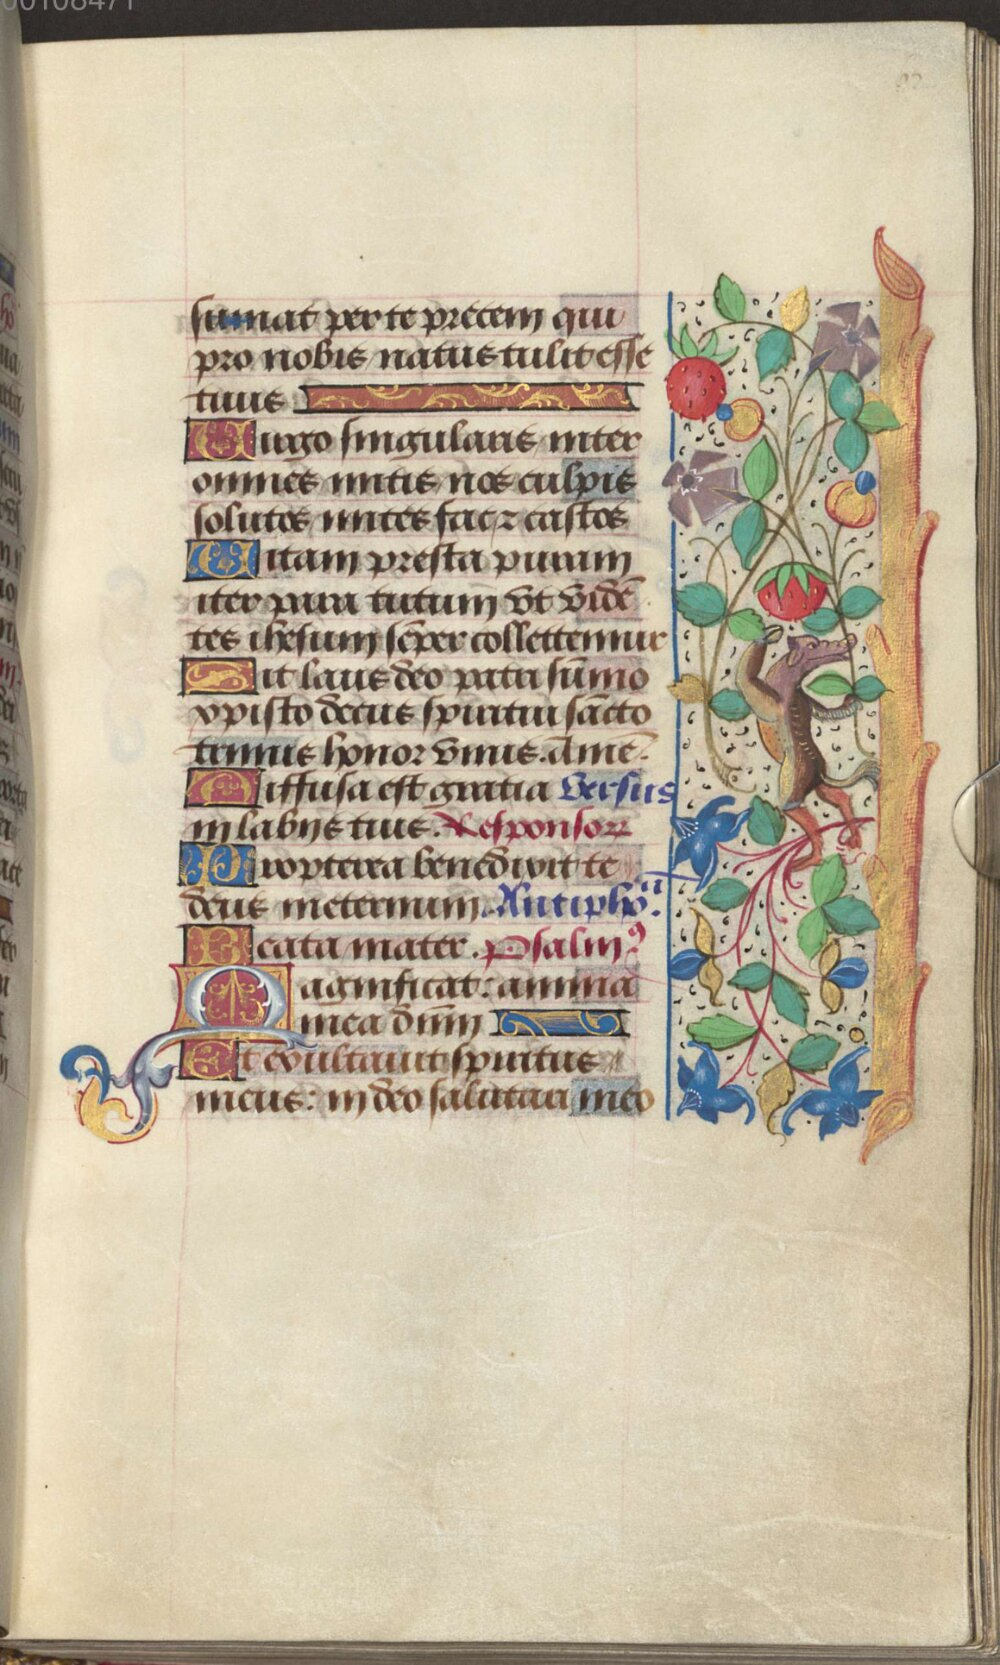 00108471
sumat per te precem qui
pro nobis natus tulit esse
tuus
Uirgo singularis inter
omnes mitis nos culpis
solutos mites fac ⁊ castos
Uitam presta puram
iter para tutum vt videñ
tes ihesum sēper collettemur
Sit laus deo patri sūmo
xpisto decus spiritui sācto
trinus honor vnus. amē.
Diffusa est gratia Versus
in labijs tuis. Responsorꝛ
Propterea benedixit te
deus ineternum. Antiphō.
Beata mater. Psalmꝰ
Magnificat: anima
mea dm̄
Et exultauit spiritus
meus: in deo salutari meo